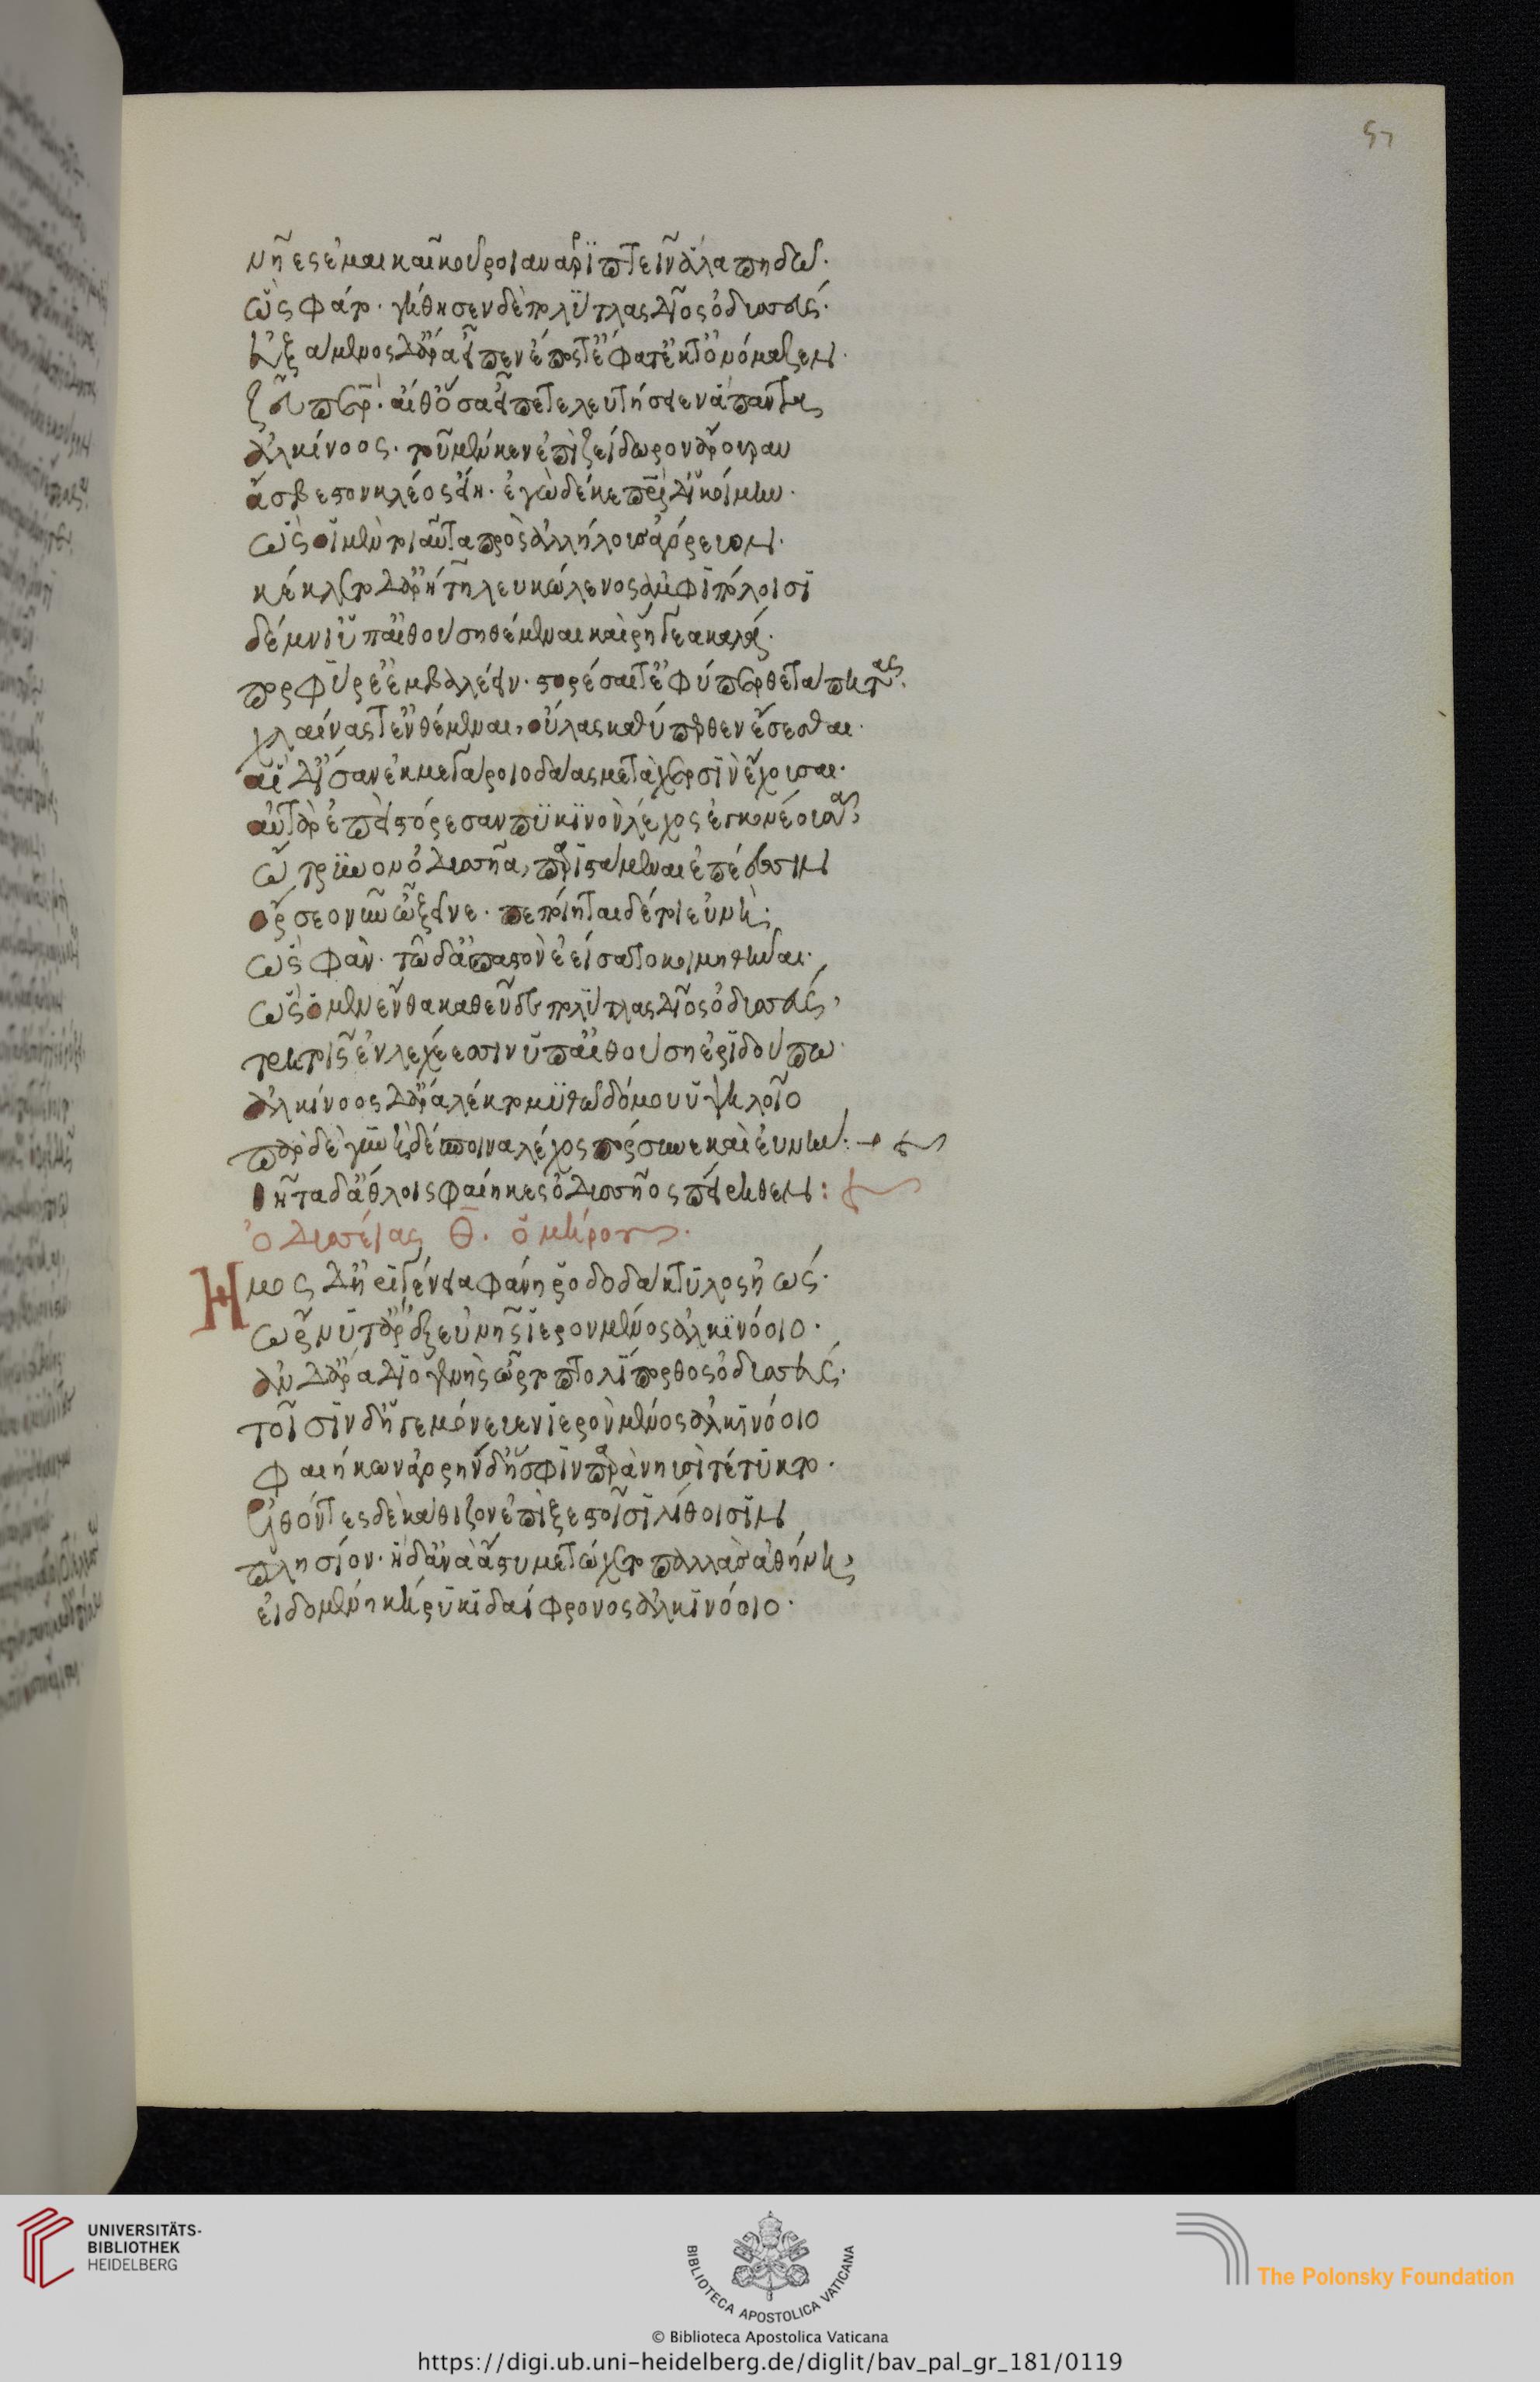 57
νῆες ἐμαὶ καὶ κοῦροι ἀναρρίπτειν ἅλα πηδῷ.
ὣς φάτο. γήθησεν δὲ πολύτλας δῖος ὀδυσσεύς.
εὐξάμενος δ' ἄρα εἶπεν ἔπος τ' ἔφατ' ἔκ τ' ὀνόμαζεν.
ζεῦ πάτερ. αἴθ' ὅσα εἶπε τελευτήσειεν ἅπαντα
ἀλκίνοος. τοῦ μέν κεν ἐπὶ ζείδωρον ἄρουραν
ἄσβεστον κλέος εἴη. ἐγὼ δέ κε πατρίδ' ἱκοίμην.
ὣς οἱ μὲν τοιαῦτα πρὸς ἀλλήλους ἀγόρευον.
κέκλετο δ' ἀρήτη λευκώλενος ἀμφιπόλοισι
δέμνι' ὑπ' αἰθούσῃ θέμεναι καὶ ῥήγεα καλά.
πορφύρε' ἐμβαλέειν. στορέσαι τ' ἐφύπερθε τάπητας.
χλαίνας τ' ἐνθέμεναι, οὔλας καθύπερθεν ἕσεσθαι.
αἱ δ' ἴσαν ἐκ μεγάροιο δάος μετὰ χερσὶν ἔχουσαι.
αὐτὰρ ἐπεὶ στόρεσαν πυκινὸν λέχος ἐγκονέουσαι,
ὤτρυνον ὀδυσσῆα, παριστάμεναι ἐπέεσσιν
ὄρσεο κέων ὦ ξεῖνε. πεποίηται δέ τοι εὐνή.
ὣς φάν. τῷ δ' ἀσπαστὸν ἐείσατο κοιμηθῆναι.
ὣς ὁ μὲν ἔνθα καθεῦδε πολύτλας δῖος ὀδυσσεύς,
τρητοῖς ἐν λεχέεσσιν ὑπ' αἰθούσῃ ἐριδούπῳ.
ἀλκίνοος δ' ἄρα λέκτο μυχῷ δόμου ὑψηλοῖο
πὰρ δὲ γυνὴ δέσποινα λέχος πόρσυνε καὶ εὐνήν:
θῆτα δ' ἀέθλοις φαίηκες ὀδυσσῆος πειρήθεν:
ὀδυσσείας θ. ὁμήρου.
Ἦμος δ' ἠριγένεια φάνη ῥοδοδάκτυλος ἠώς.
ὤρνυτ' ἄρ' ἐξ εὐνῆς ἱερὸν μένος ἀλκινόοιο.
ἂν δ' ἄρα διογενὴς ὦρτο πτολίπορθος ὀδυσσεύς.
τοῖσιν δ' ἡγεμόνευεν ἱερὸν μένος ἀλκινόοιο
φαιήκων ἀγορήνδ' ἥ σφιν παρὰ νηυσὶ τέτυκτο.
ἐλθόντες δὲ κάθιζον ἐπὶ ξεστοῖσι λίθοισιν
πλησίον. ἡ δ' ἀνὰ ἄστυ μετῴχετο παλλὰς ἀθήνη,
εἰδομένη κήρυκι δαίφρονος ἀλκινόοιο.
UNIVERSITÄTS-
BIBLIOTHEK
HEIDELBERG
BIBLIOTECA APOSTOLICA VATICANA
The Polonsky Foundation
© Biblioteca Apostolica Vaticana
https://digi.ub.uni-heidelberg.de/diglit/bav_pal_gr_181/0119